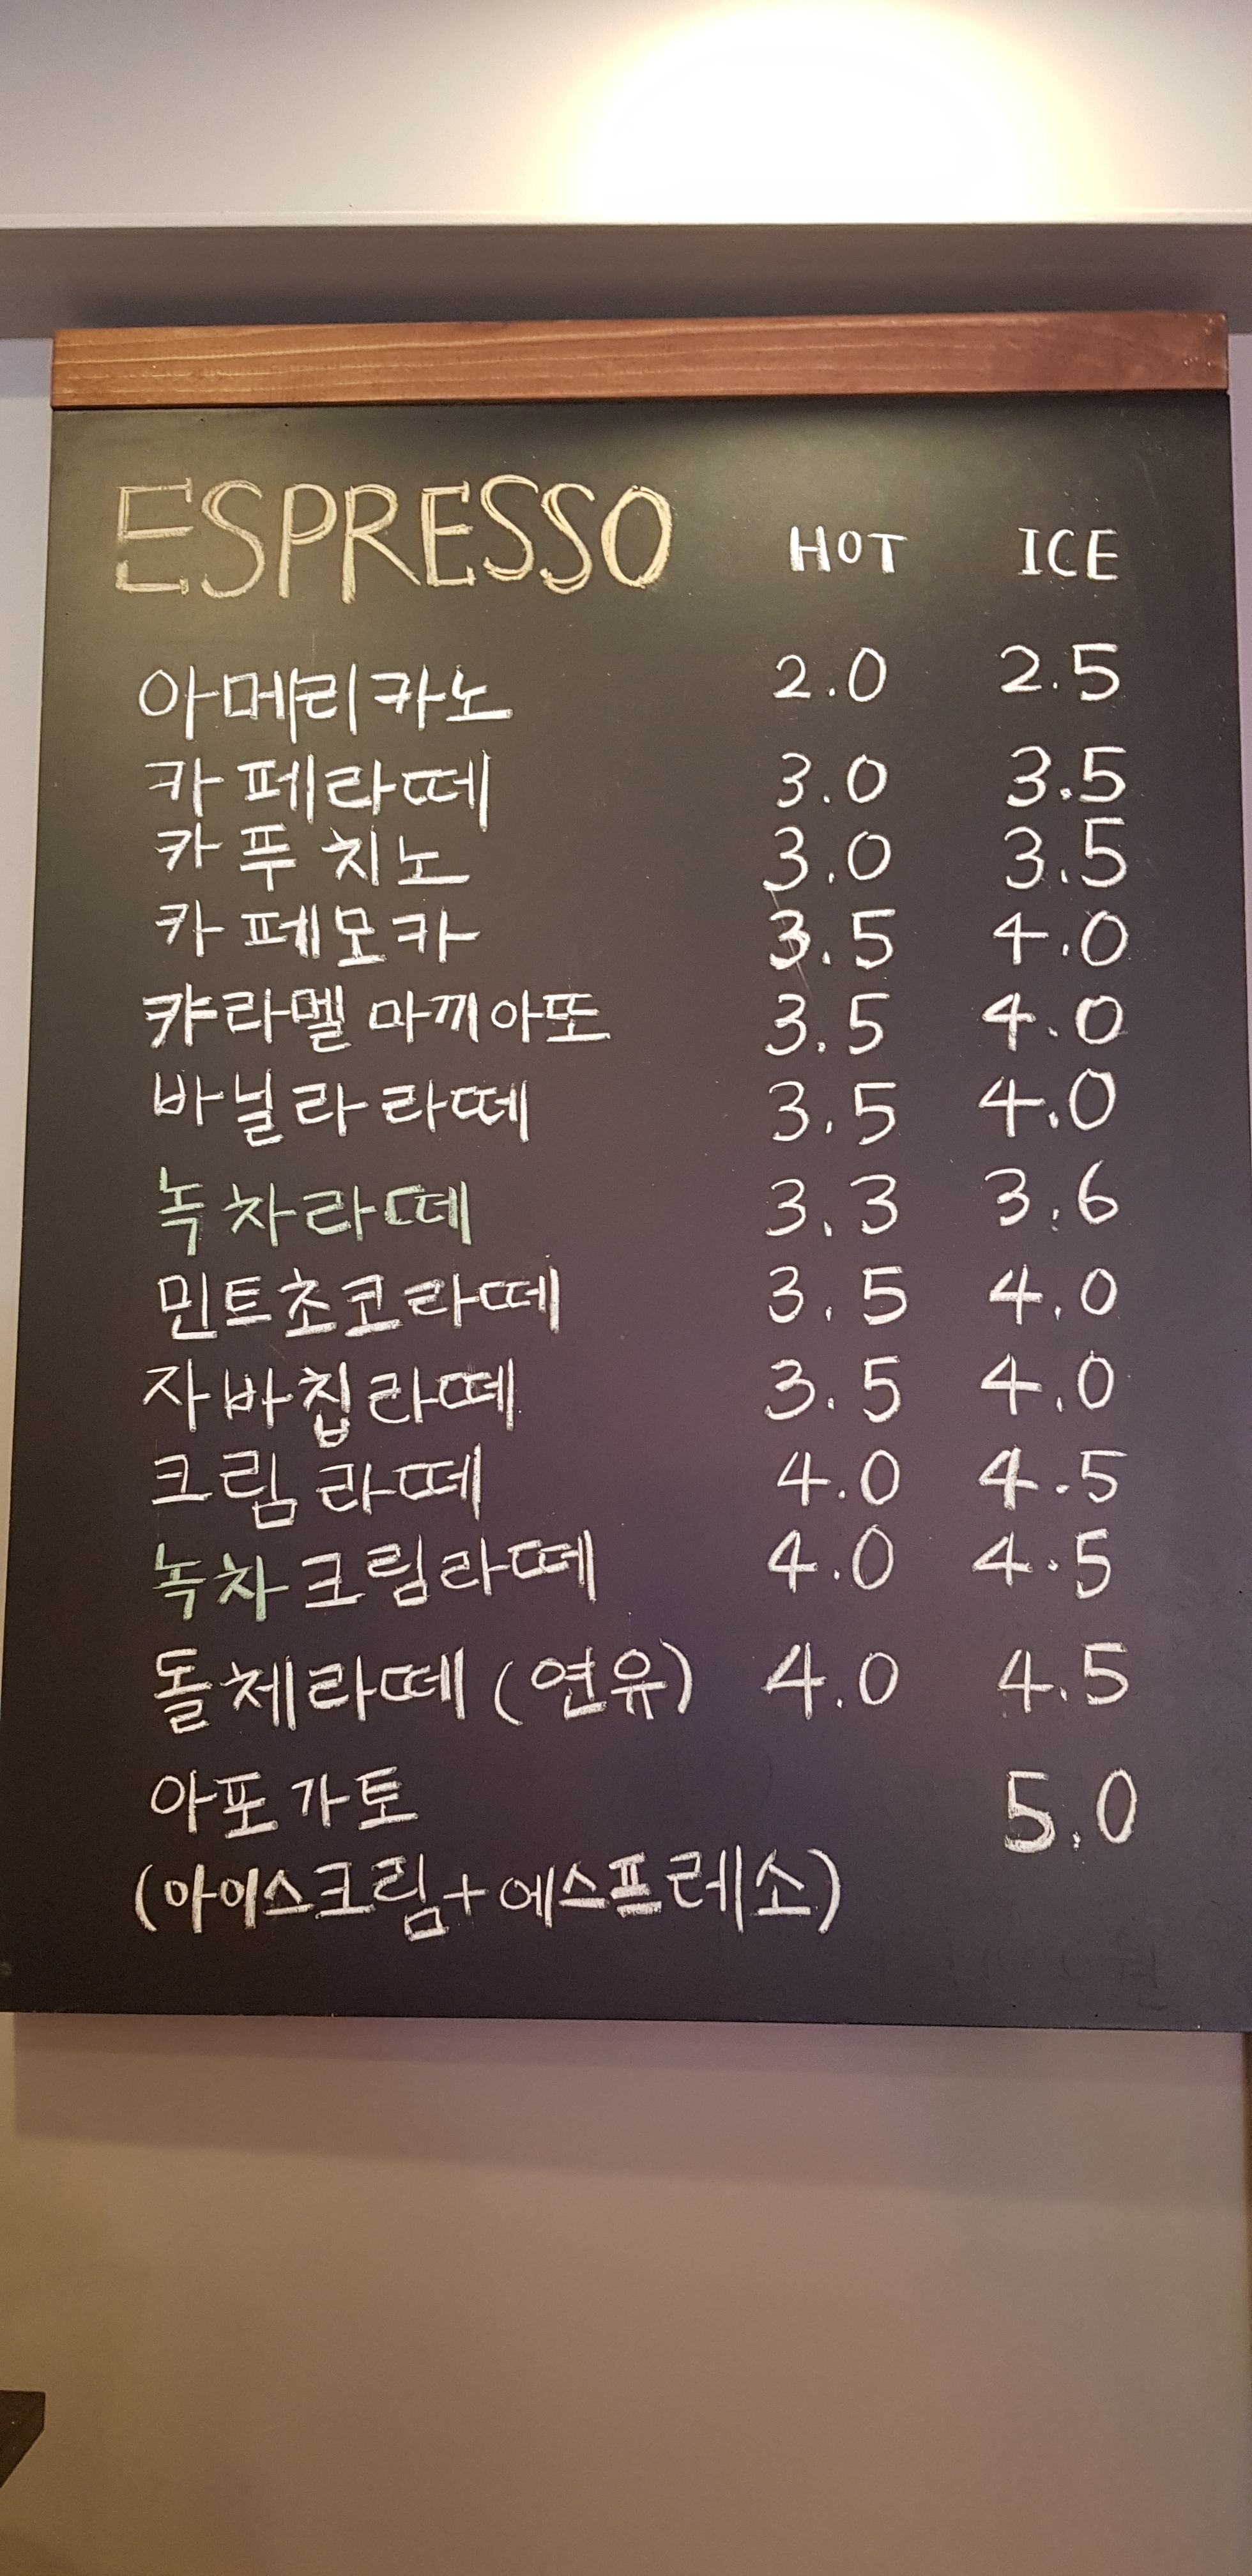 ESPRESSO HOT ICE
아메리카노 2.0 2.5
카페라떼 3.0 3.5
카푸치노 3.0 3.5
카페모카 3.5 4.0
캬라멜 마끼아또 3.5 4.0
바닐라 라떼 3.5 4.0
녹차라떼 3.3 3.6
민트초코라떼 3.5 4.0
자바칩라떼 3.5 4.0
크림 라떼 4.0 4.5
녹차크림라떼 4.0 4.5
돌체라떼 (연유) 4.0 4.5
아포가토 5.0
(아이스크림+에스프레소)